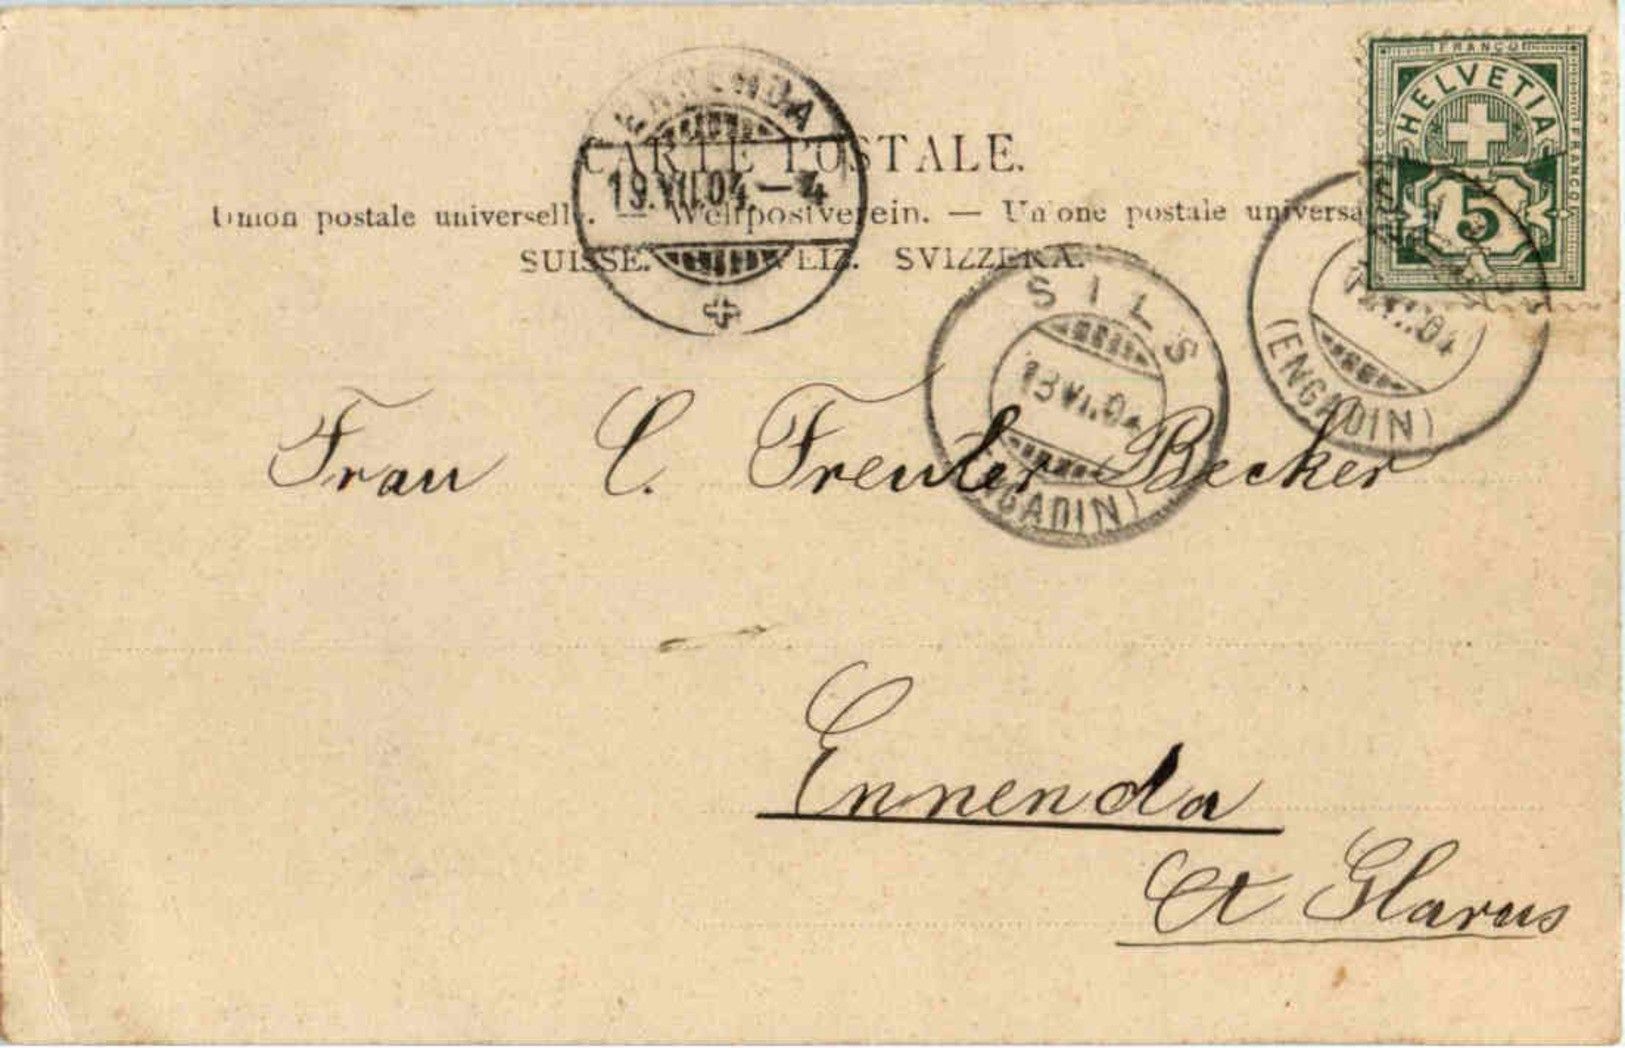 FRANCO
HELVETIA
FRANCO
5
ENNENDA
19.VII.04.—4
CARTE POSTALE.
Union postale universelle. — Weltpostverein. — Unione postale universale
SUISSE. SCHWEIZ. SVIZZERA.
SILS
18.VII.04
(ENGADIN)
VII.04
(ENGADIN)
Frau C. Freuler Becker
Ennenda
Ct Glarus